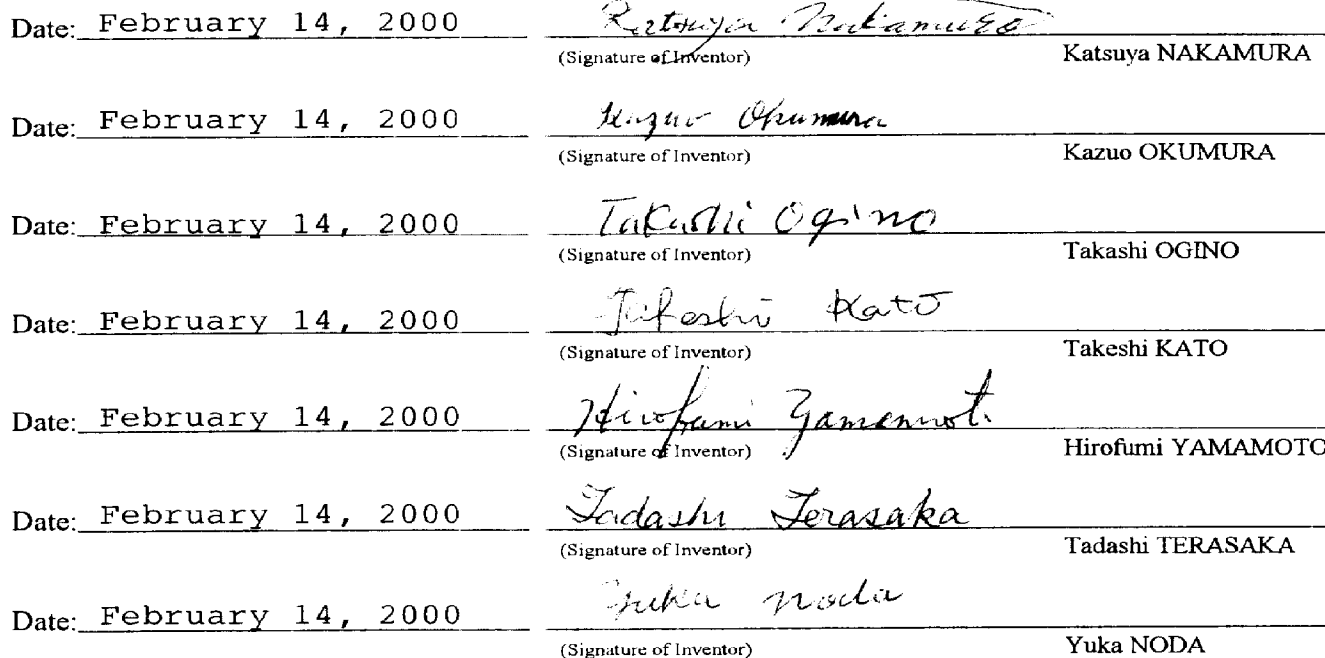 Date: February 14, 2000 Katsuya Nakamura
(Signature of Inventor) Katsuya NAKAMURA
Date: February 14, 2000 Kazuo Okumura
(Signature of Inventor) Kazuo OKUMURA
Date: February 14, 2000 Takashi Ogino
(Signature of Inventor) Takashi OGINO
Date: February 14, 2000 Takeshi Kato
(Signature of Inventor) Takeshi KATO
Date: February 14, 2000 Hirofumi Yamamoto
(Signature of Inventor) Hirofumi YAMAMOTO
Date: February 14, 2000 Tadashi Terasaka
(Signature of Inventor) Tadashi TERASAKA
Date: February 14, 2000 Yuka Noda
(Signature of Inventor) Yuka NODA